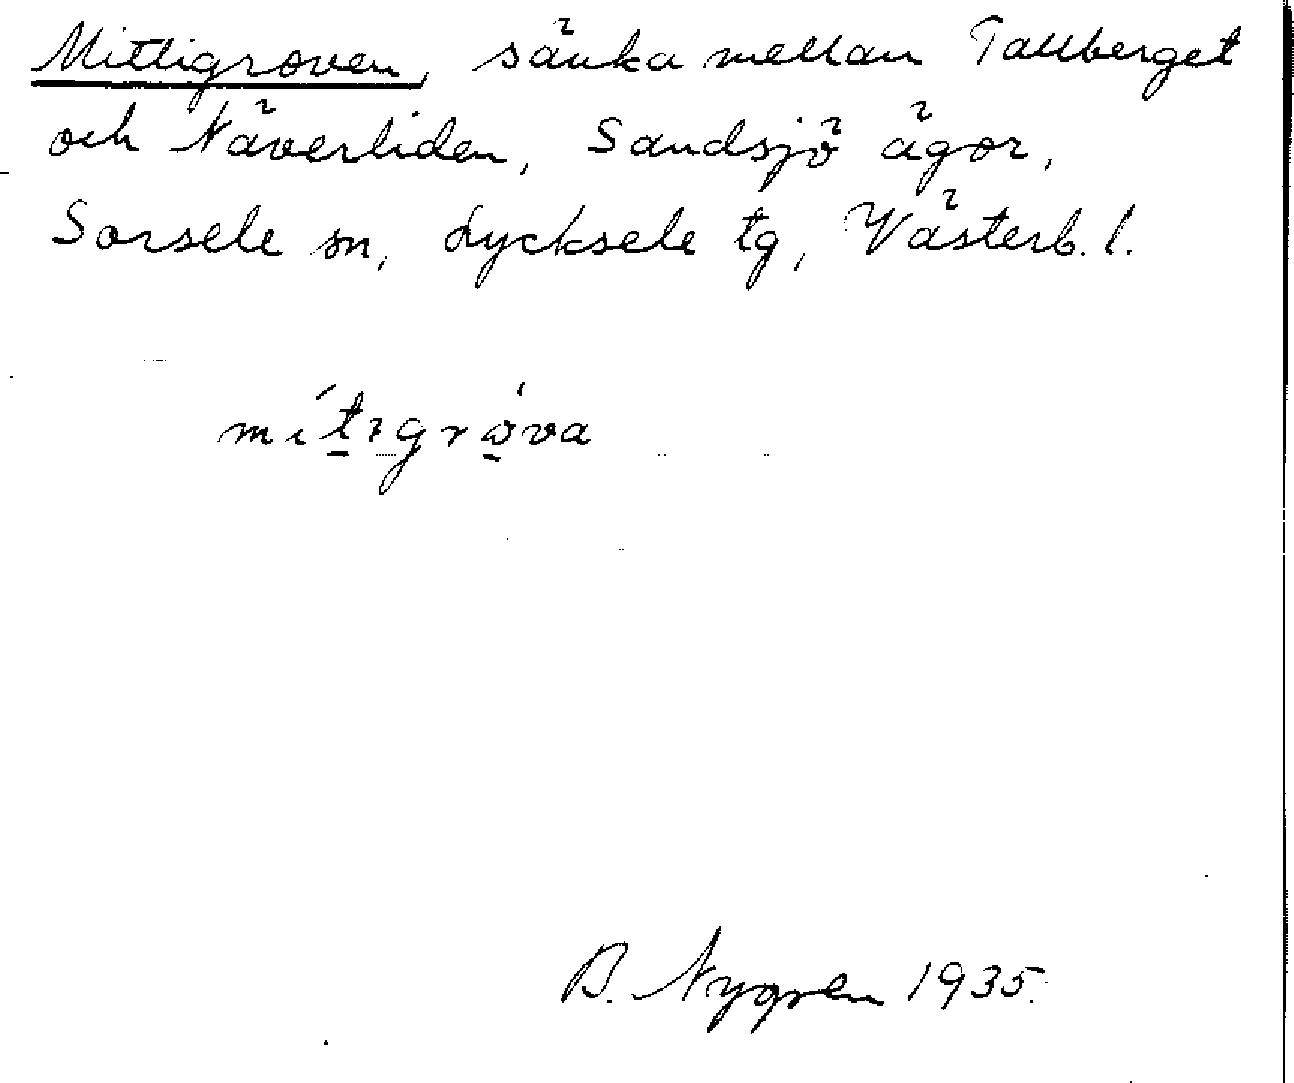 Mittigroven, sänka mellan Tallberget
och Näverliden, Sandsjö ägor,
Sorsele sn, Lycksele tg, Västerb. l.
mítigròva
B. Nygren 1935.